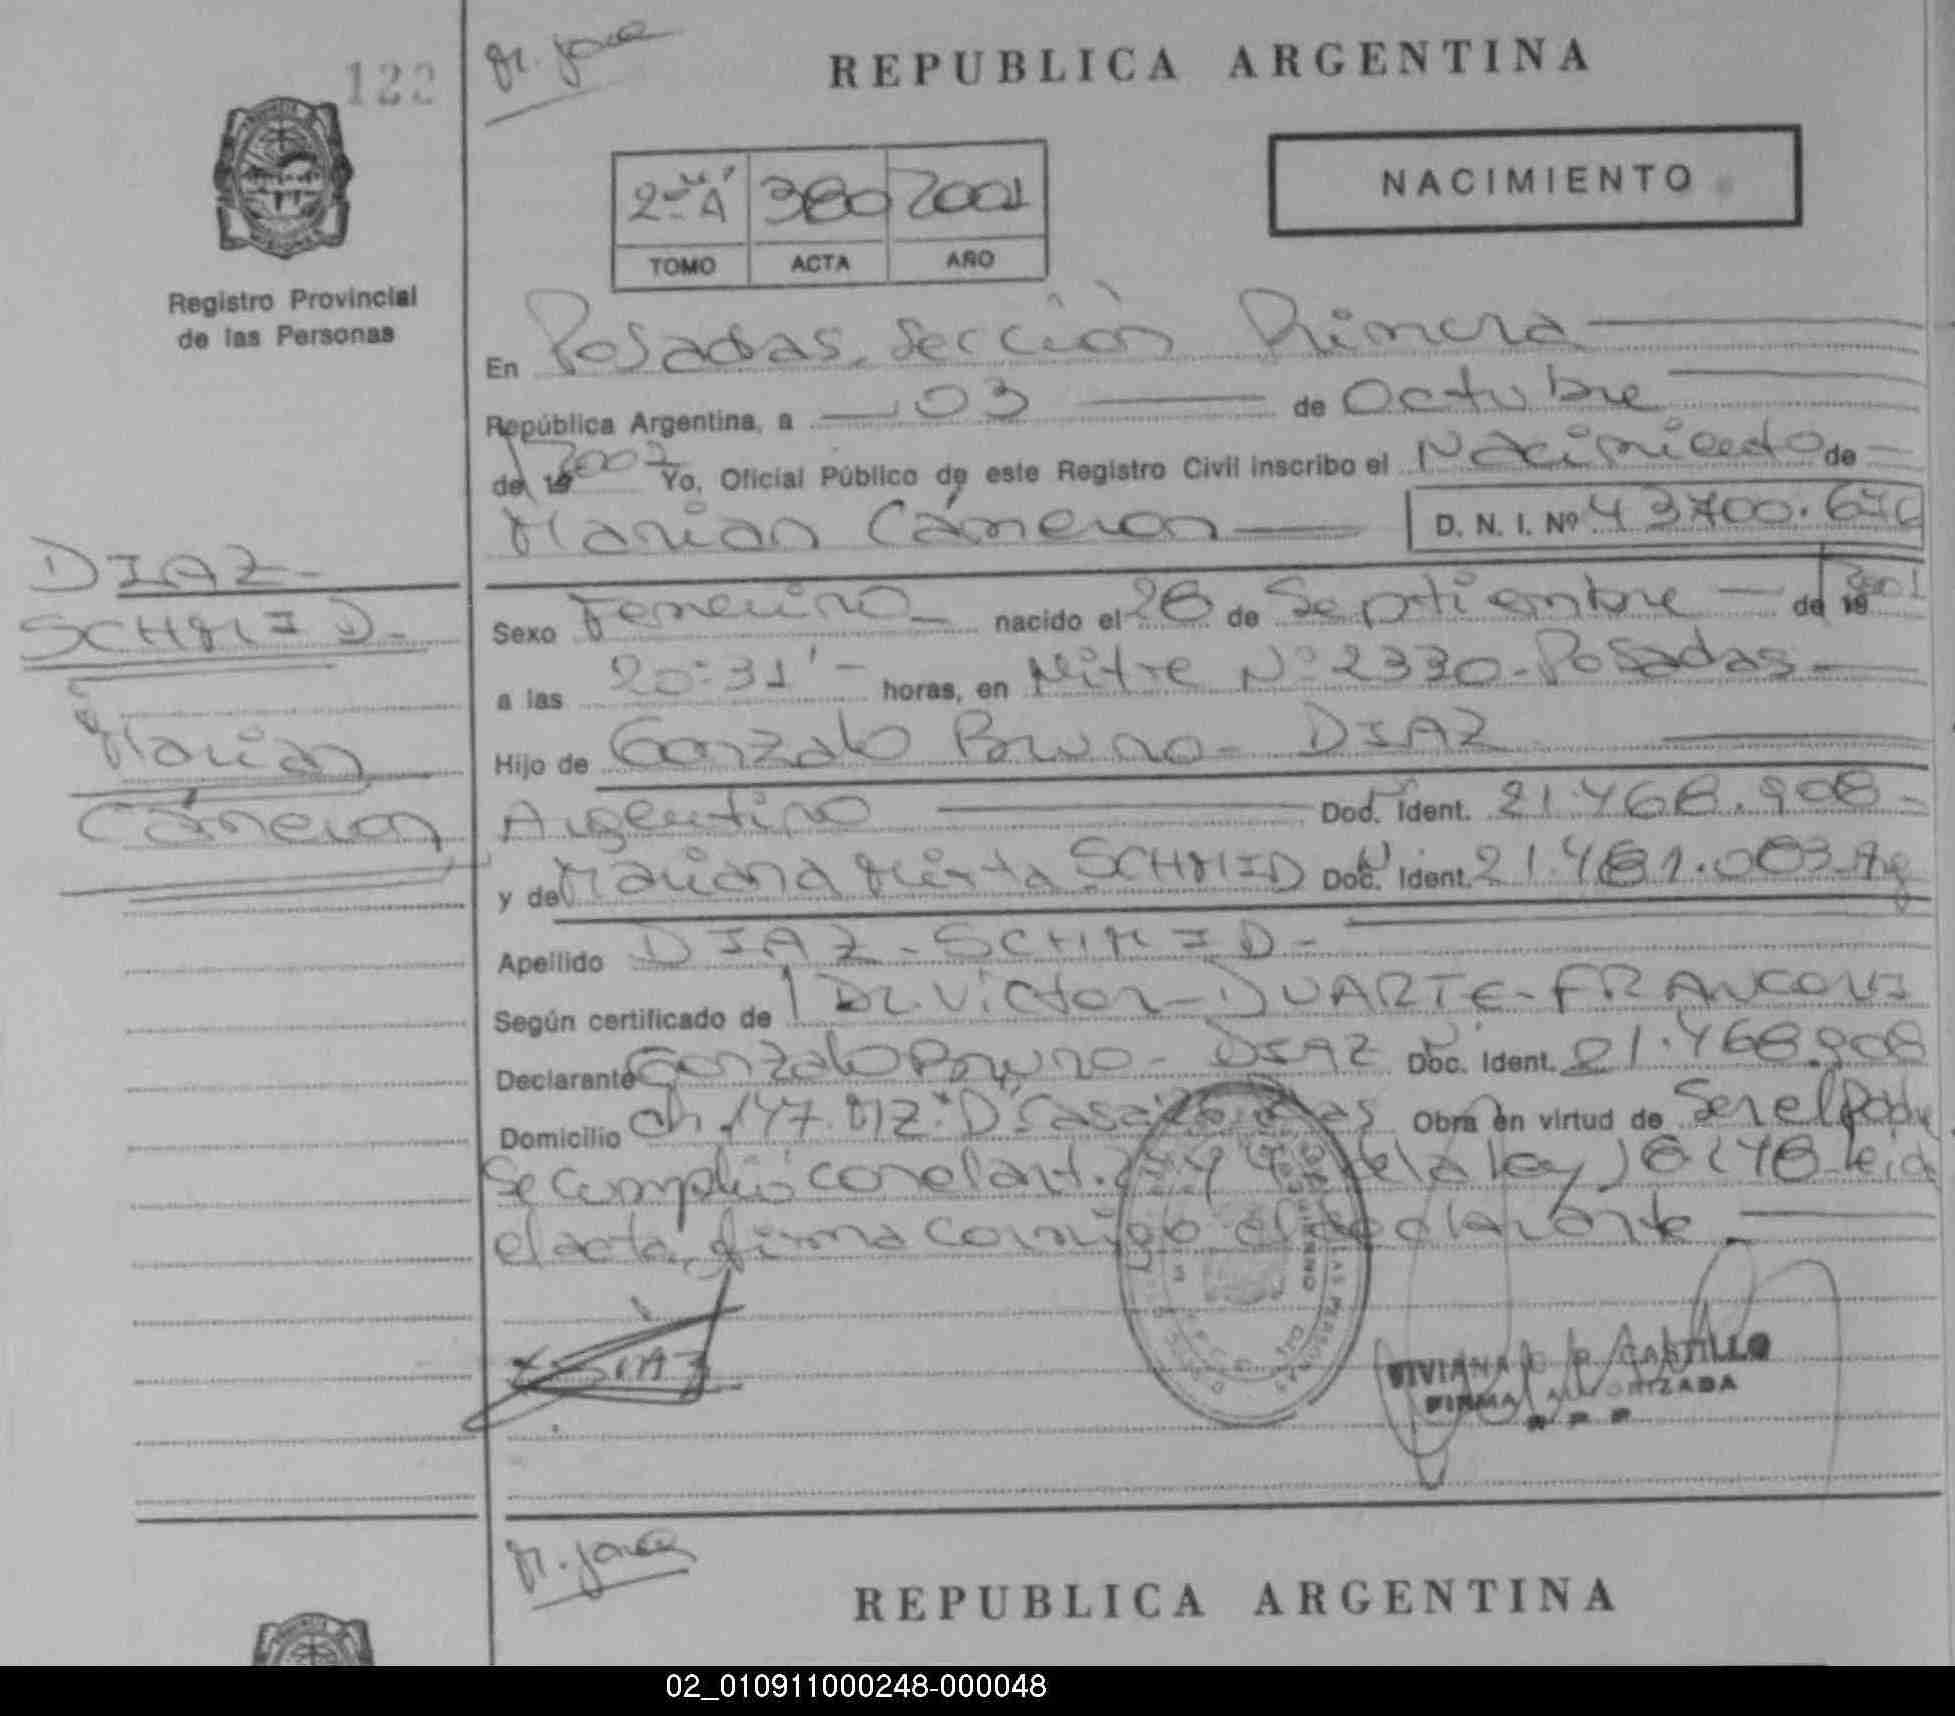 122
REPUBLICA ARGENTINA
NACIMIENTO
2º "A" 380 2001
TOMO ACTA AÑO
Registro Provincial
de las Personas
En Posadas, Sección Primera
República Argentina, a 03 de Octubre
de 19 2001 Yo, Oficial Público de este Registro Civil inscribo el Nacimiento de
Marian Cámeron D. N. I. Nº 43700.670
DIAZ-
SCHMID-
Marian
Cámeron
Sexo Femenino nacido el 28 de Septiembre de 19 2001
a las 20:31' horas, en Mitre Nº 2330-Posadas-
Hijo de Gonzalo Bruno- DIAZ
Argentino Doc. Ident. 21.468.908-
y de Mariana Mirta SCHMID Doc. Ident. 21.481.003-Arg
Apellido DIAZ-SCHMID-
Según certificado de Dr. Victor-DUARTE-FRANCONI
Declarante Gonzalo Bruno- DIAZ Doc. Ident. 21.468.908
Domicilio ch 147. MZ. "D" Casa Obra en virtud de Ser el Padre
Se cumplió con el art. de la ley 18248 leida
el acta, firma conmigo el declarante
DIAZ
VIVIANA CASTILLO
FIRMA AUTORIZADA
REPUBLICA ARGENTINA
02_010911000248-000048